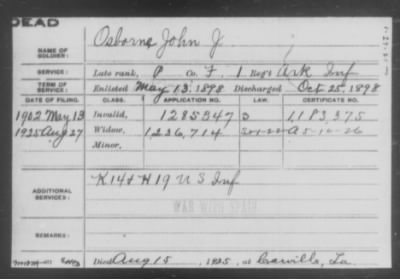 DEAD
NAME OF SOLDIER: Osborne, John J.
SERVICE: Late rank, P Co. F, 1 Reg't Ark Inf
TERM OF SERVICE: Enlisted May 13, 1898 Discharged Oct 25, 1898
DATE OF FILING. CLASS. APPLICATION NO. LAW. CERTIFICATE NO.
1902 May 13 Invalid, 1285347 1183,375
1925 Aug 27 Widow, 1236,714 A 5-10-26
Minor,
ADDITIONAL SERVICES: K 14 & H 19 U S Inf
WAR WITH SPAIN
REMARKS:
Died Aug 15, 1925, at Carville, La.